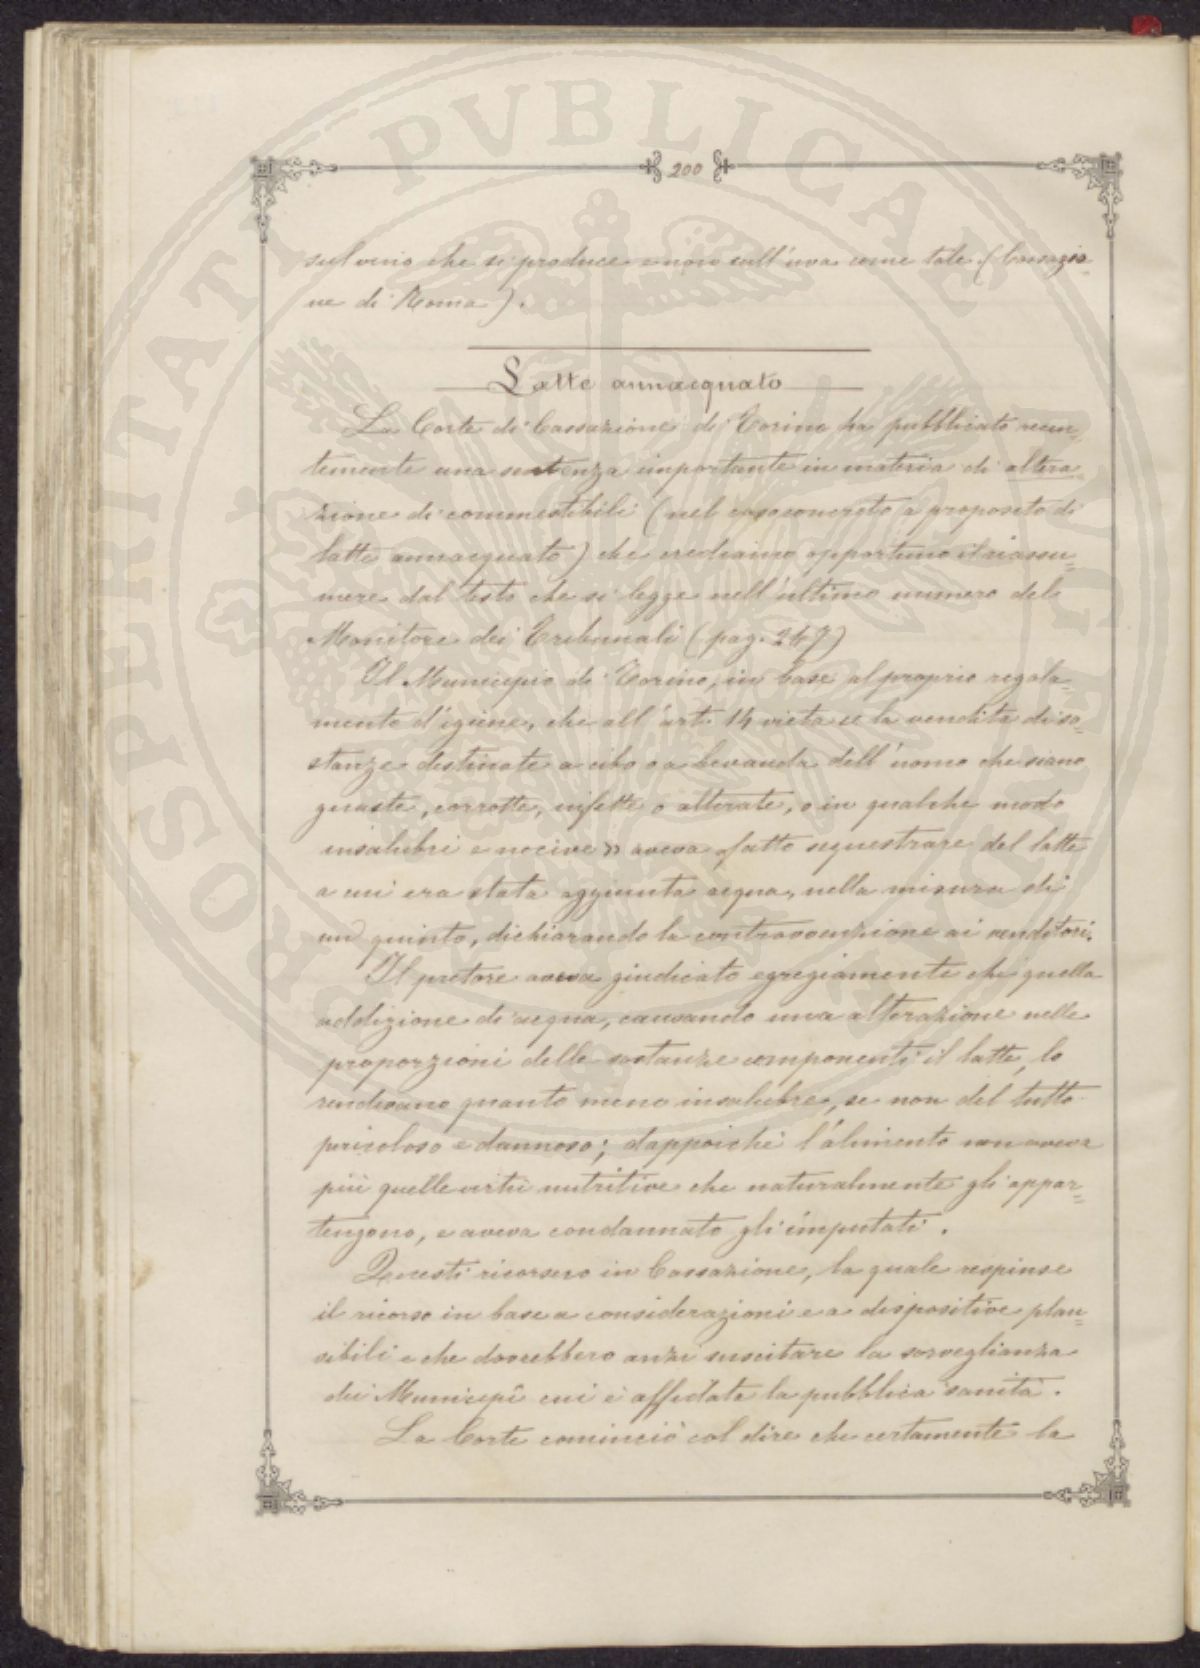 200
sul vino che si produce e non sull'uva come tale. (Cassazio-
ne di Roma).
Latte annacquato
La Corte di Cassazione di Torino ha pubblicato recen-
temente una sentenza importante in materia di altera-
zione di commestibili (nel caso concreto a proposito di
latte annacquato) che crediamo opportuno il riassu-
mere dal testo che si legge nell'ultimo numero del
Monitore dei Tribunali (pag. 247)
Il Municipio di Torino, in base al proprio regola-
mento d'igiene, che all'art. 14 vieta la vendita di so-
stanze destinate a cibo o a bevanda dell'uomo che siano
guaste, corrotte, infette o alterate, o in qualche modo
insalubri e nocive» aveva fatto sequestrare del latte
a cui era stata aggiunta acqua, nella misura di
un quinto, dichiarando la contravvenzione ai venditori.
Il pretore aveva giudicato egregiamente che quella
addizione di acqua, causando una alterazione nelle
proporzioni delle sostanze componenti il latte, lo
rendevano quanto meno insalubre, se non del tutto
pericoloso e dannoso; dappoichè l'alimento non aveva
più quelle virtù nutritive che naturalmente gli appar-
tengono, e aveva condannato gli imputati.
Questi ricorsero in Cassazione, la quale respinse
il ricorso in base a considerazioni e a dispositive plau-
sibili e che dovrebbero anzi suscitare la sorveglianza
dei Municipî cui è affidata la pubblica sanità.
La Corte cominciò col dire che certamente la
PROSPERITATI PVBLICAE